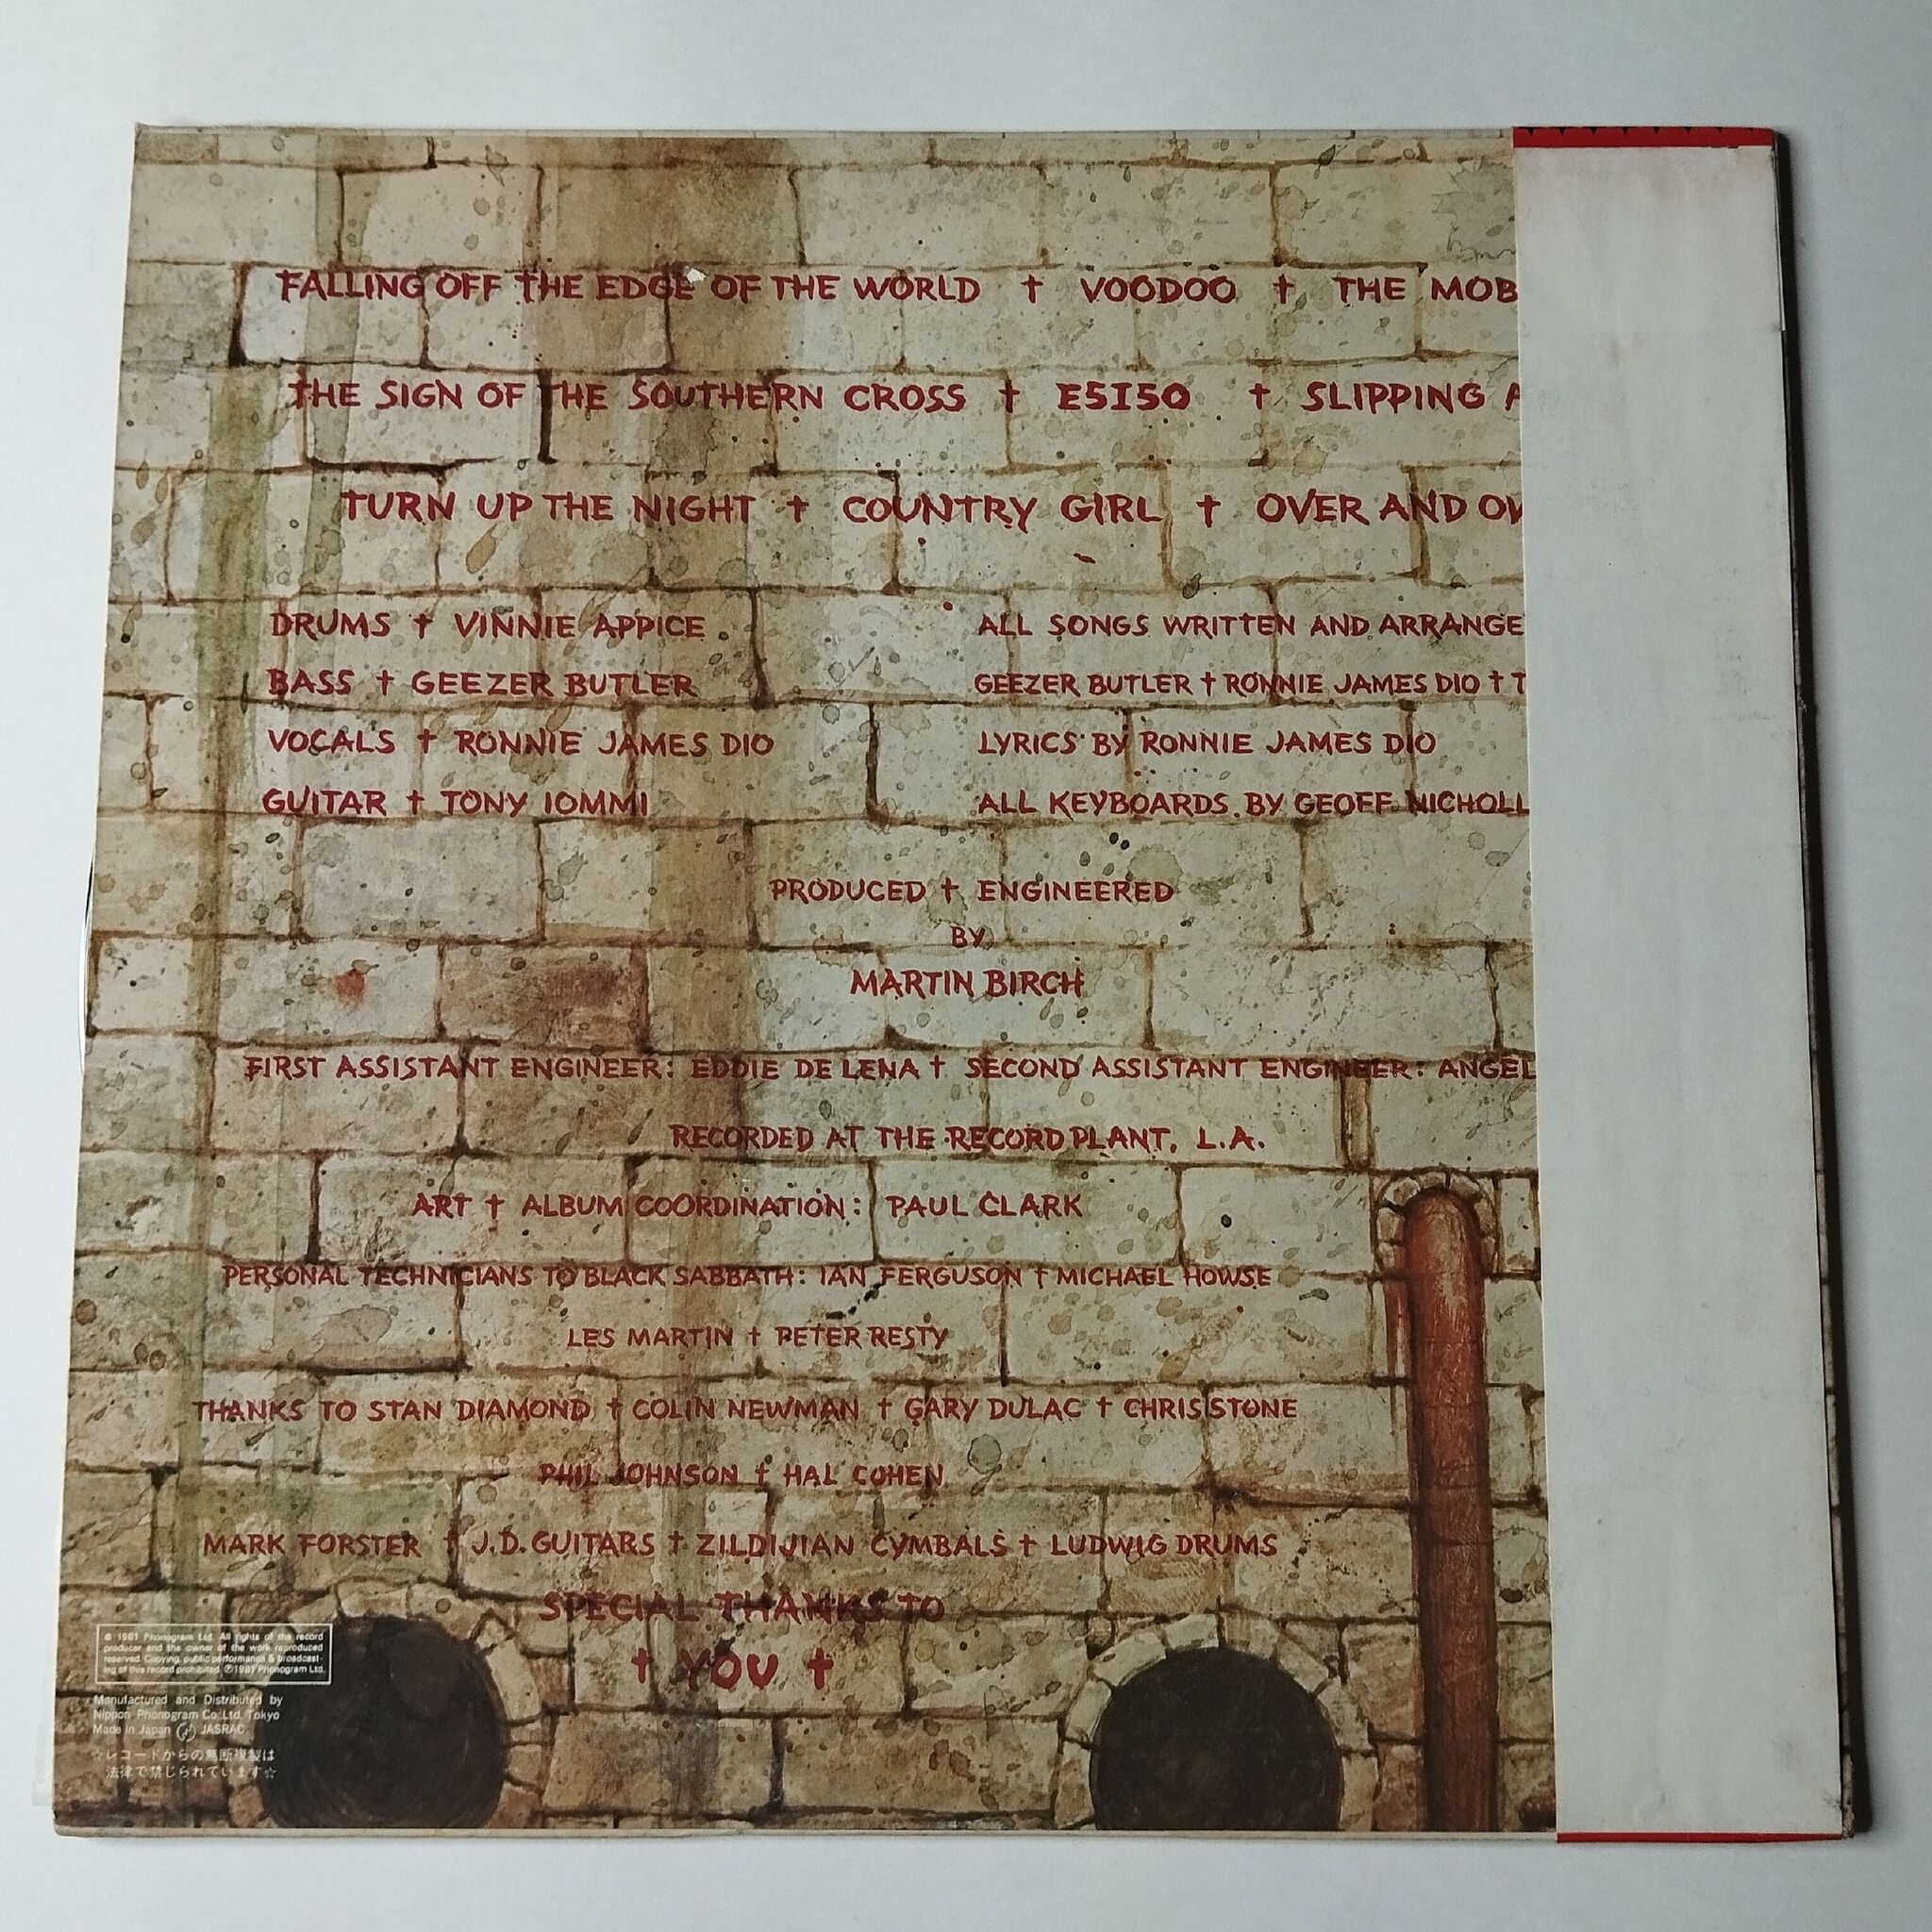 FALLING OFF THE EDGE OF THE WORLD † VOODOO † THE MOB
THE SIGN OF THE SOUTHERN CROSS † E5150 † SLIPPING A
TURN UP THE NIGHT † COUNTRY GIRL † OVER AND OV
DRUMS † VINNIE APPICE
BASS † GEEZER BUTLER
VOCALS † RONNIE JAMES DIO
GUITAR † TONY IOMMI
ALL SONGS WRITTEN AND ARRANGE
GEEZER BUTLER † RONNIE JAMES DIO † T
LYRICS BY RONNIE JAMES DIO
ALL KEYBOARDS BY GEOFF NICHOLL
PRODUCED † ENGINEERED
BY
MARTIN BIRCH
FIRST ASSISTANT ENGINEER: EDDIE DE LENA † SECOND ASSISTANT ENGINEER: ANGEL
RECORDED AT THE RECORD PLANT, L.A.
ART † ALBUM COORDINATION: PAUL CLARK
PERSONAL TECHNICIANS TO BLACK SABBATH: IAN FERGUSON † MICHAEL HOWSE
LES MARTIN † PETER RESTY
THANKS TO STAN DIAMOND † COLIN NEWMAN † GARY DULAC † CHRIS STONE
PHIL JOHNSON † HAL COHEN
MARK FORSTER † J.D. GUITARS † ZILDIJIAN CYMBALS † LUDWIG DRUMS
SPECIAL THANKS TO
† YOU †
© 1981 Phonogram Ltd. All rights of the record
producer and the owner of the work reproduced
reserved. Copying, public performance & broadcast-
ing of this record prohibited. ℗1981 Phonogram Ltd.
Manufactured and Distributed by
Nippon Phonogram Co.,Ltd. Tokyo
Made in Japan JASRAC
☆レコードからの無断複製は
法律で禁じられています☆